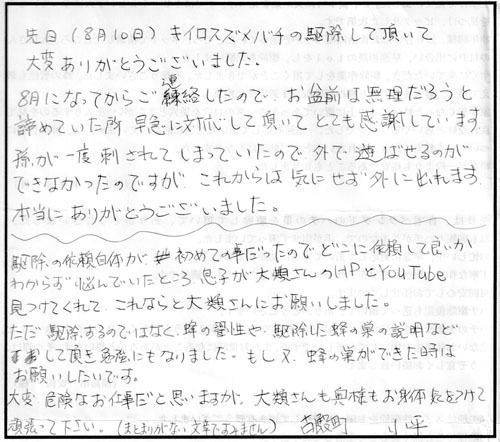 先日(8月10日)キイロスズメバチの駆除して頂いて
大変ありがとうございました。
8月になってからご連絡したので、お盆前は無理だろうと
諦めていた所 早急に対応して頂いてとても感謝しています
孫が一度刺されてしまっていたので外で遊ばせるのが
できなかったのですが、これからは気にせず外に出れます。
本当にありがとうございました。
駆除の依頼自体が 初めての事だったのでどこに依頼して良いか
わからず悩んでいたところ、息子が大類さんのHPとYouTube
見つけてくれて、これならと大類さんにお願いしました。
ただ駆除するのではなく、蜂の習性や、駆除した蜂の巣の説明など
して頂き勉強にもなりました。もし又、蜂の巣ができた時は
お願いしたいです。
大変危険なお仕事だと思いますが、大類さんも奥様もお身体気をつけて
頑張って下さい。(まとまりがない文章ですみません) 古殿町 小平